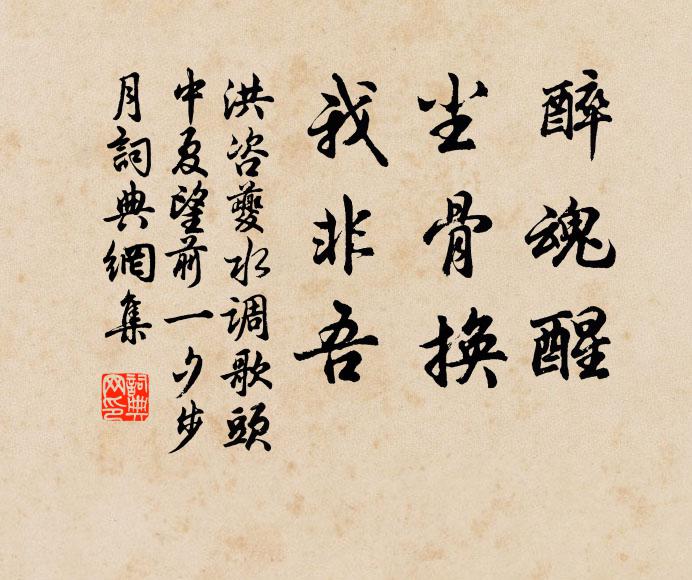 醉魂醒
尘骨换
我非吾
洪咨夔水调歌頭
中夏望前一夕步
月詞典網集
詞典网印